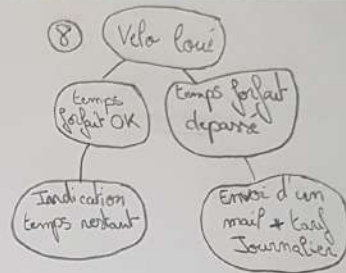 8
Vélo loué
temps
forfait OK
temps forfait
depassé
Indication
temps restant
Envoi d'un
mail + tarif
Journalier